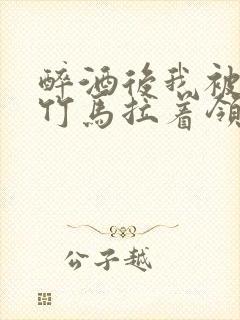 醉酒後我被
竹馬拉着領
公子越